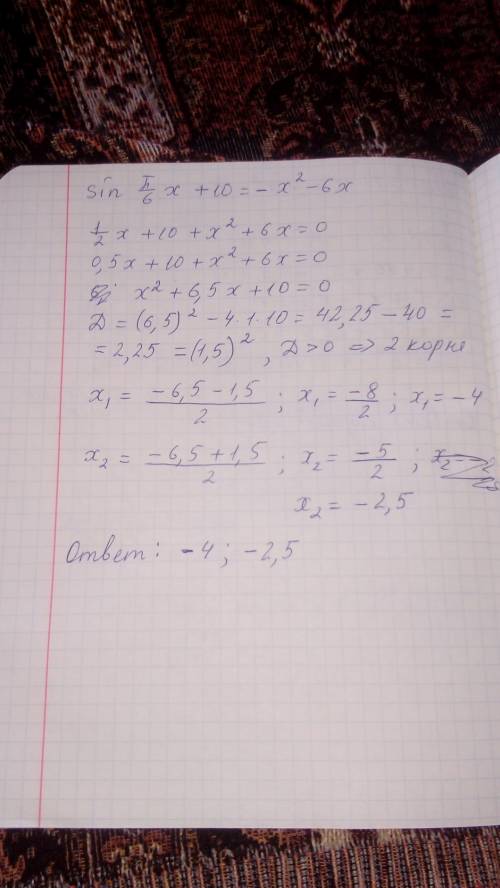 sin π/6 x + 10 = - x² - 6x
1/2 x + 10 + x² + 6x = 0
0,5x + 10 + x² + 6x = 0
x² + 6,5x + 10 = 0
Д = (6,5)² - 4·1·10 = 42,25 - 40 =
= 2,25 = (1,5)² , Д > 0 => 2 корня
x₁ = (-6,5 - 1,5)/2 ; x₁ = -8/2 ; x₁ = -4
x₂ = (-6,5 + 1,5)/2 ; x₂ = -5/2 ;
x₂ = -2,5
Ответ: -4 ; -2,5